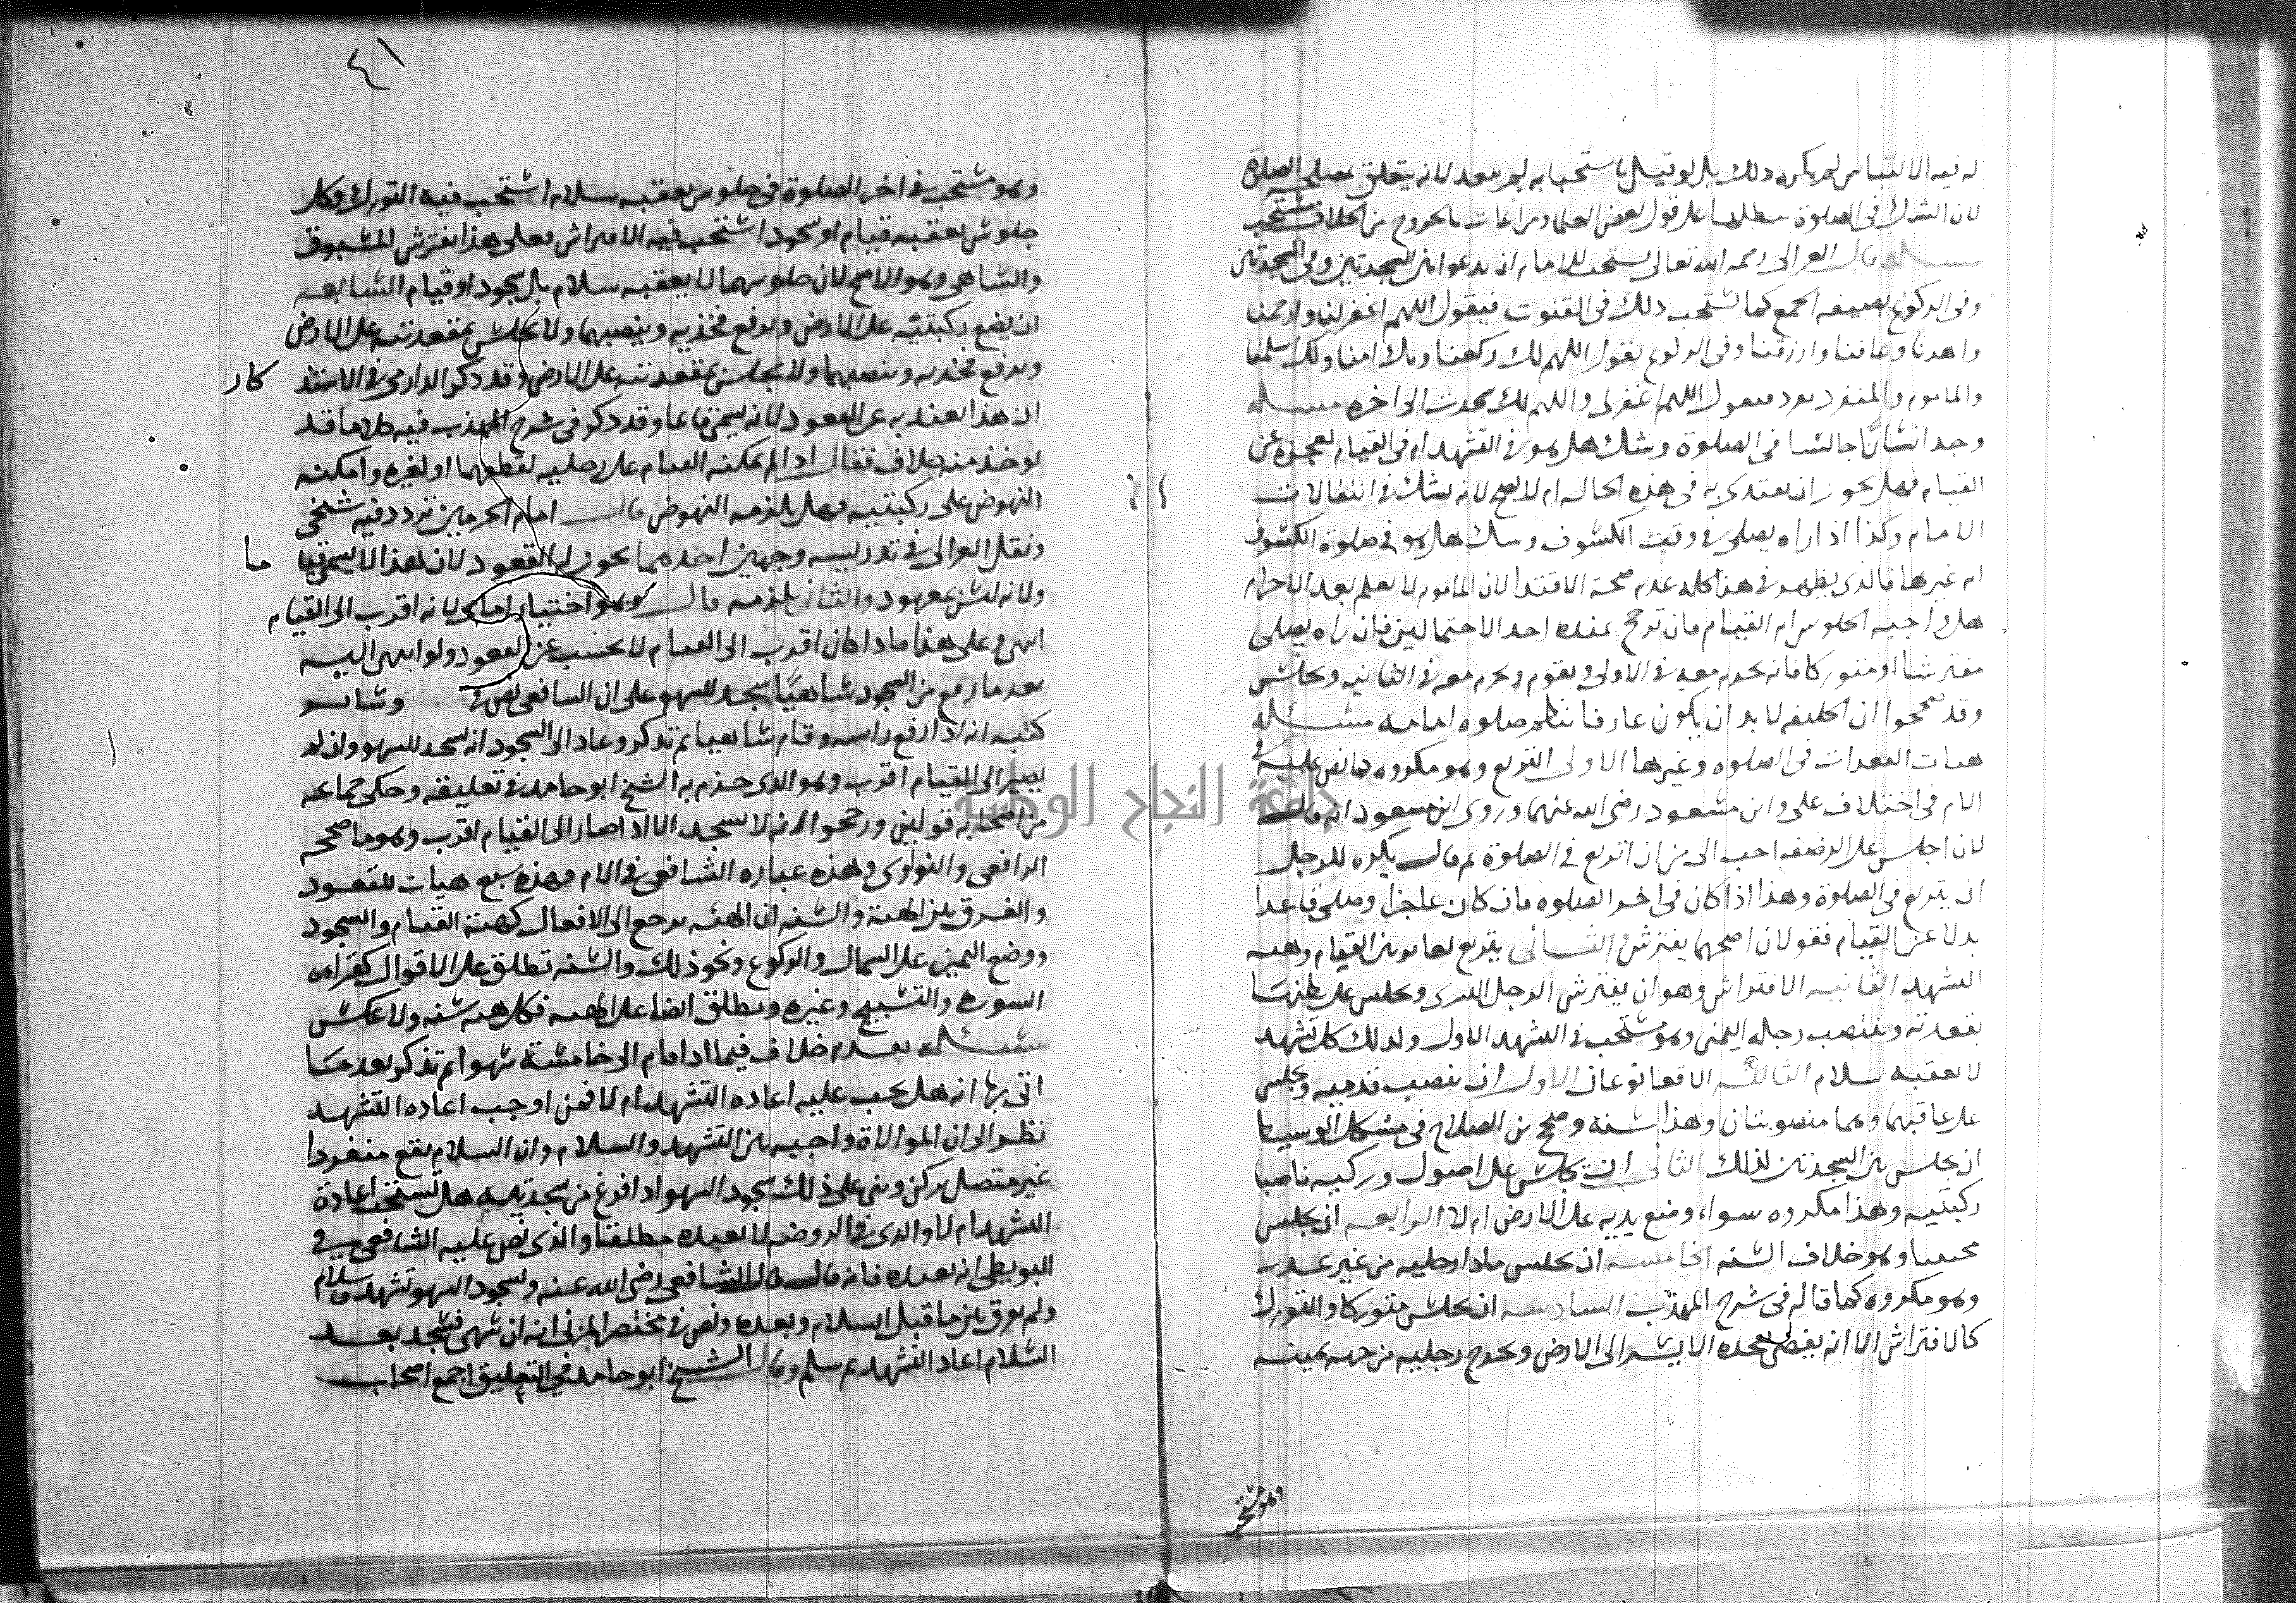 له فيه الالتباس لم يكره ذلك بل لو قيل باستحبابه لم يبعد لانه يتعلق بمصلحة الصلاة
لان الشك فى الصلوة مبطلها على قول بعض العلما ومراعات الخروج من الخلاف مستحب
مسئله قال الغزالى رحمه الله تعالى يستحب للامام ان يدعو بين السجدتين وفى السجدتين
وفى الركوع بصيغه الجمع كما يستحب ذلك فى القنوت فيقول اللهم اغفر لنا وارحمنا
واهدنا وعافنا وارزقنا وفى الركوع يقول اللهم لك ركعنا وبك امنا ولك اسلمنا
والماموم والمنفرد يفرد فيقول اللهم اغفر لى واللهم لك سجدت الى اخره مسئله
وجد انسانا جالسا فى الصلوة وشك هل هو فى التشهد ام فى القيام لعجزه عن
القيام فهل يجوز ان يقتدى به فى هذه الحاله ام لا يصح لانه يشك فى انتقالات
الامام وكذا اذا راه يصلى فى وقت الكسوف وشك هل هو فى صلوة الكسوف
ام غيرها فالذى يظهر فى هذا كله عدم صحة الاقتدا لان الماموم لا يعلم بعد الاحرام
هل واجبه الجلوس ام القيام فان ترجح عنده احد الاحتمالين فان راه يصلى
مفترشا او متوركا فانه يحرم معه فى الاولى ويقوم ويحرم معه فى الثانيه ويجلس
وقد صححوا ان الخليفه لا بد ان يكون عارفا بنظم صلوه امامه مسئله
هيات القعدات فى الصلوه وغيرها الاولى التربع وهو مكروه كما نص عليه فى
الام فى اختلاف على وابن مسعود رضى الله عنهما وروى ابن مسعود انه قال
لان اجلس على الرضف احب الى من ان اتربع فى الصلوة ثم قال يكره للرجل
ان يتربع فى الصلوة وهذا اذا كان فى اخر الصلوه فان كان عاجزا وصلى قاعدا
بدلا عن القيام فقولان اصحهما يفترش والثانى يتربع لها بين القيام وهيه
التشهد الثانيه الافتراش وهو ان يفترش الرجل اليسرى ويجلس على بطنها
بقعدته وينتصب رجله اليمنى وهو مستحب فى التشهد الاول ولذلك كل تشهد
لا يعقبه سلام الثالثه الاقعا نوعان الاول ان ينصب قدميه ويجلس
على عاقبهما وهما منصوبتان وهذا سنه وصحح بن الصلاح فى مشكل الوسيط
ان يجلس بين السجدتين كذلك الثانى ان يجلس على اصول وركيه ناصبا
ركبتيه وهذا مكروه سواء وضع يديه على الارض ام لا الرابعه ان يجلس
محتبيا وهو خلاف السنه الخامسه ان يجلس مادا رجليه من غير عذر
وهو مكروه كما قاله فى شرح المهذب السادسه ان يجلس متوركا والتورك
كالافتراش الا انه يفضى بعجزه الايسر الى الارض ويخرج رجليه من جهه يمينه
وهو مستحب
٤١
وهو مستحب فى اخر الصلوة فى جلوس يعقبه سلام استحب فيه التورك وكل
جلوس يعقبه قيام او سجود استحب فيه الافتراش فعلى هذا يفترش المسبوق
والساهى وهو الاصح لان جلوسهما لا يعقبه سلام بل سجود او قيام السابعه
ان يضع ركبتيه على الارض ويرفع فخذيه وينصبهما ولا يجلس بمقعدته على الارض
ويرفع فخذيه وينصبهما ولا يجلس بمقعدته على الارض وقد ذكر الدارمى فى الاستذ كار
ان هذا يعتد به عن القعود لانه يسمى قاعدا وقد ذكر فى شرح المهذب فيه كلاما قد
يوخذ منه خلاف فقال اذا لم يمكنه القيام على رجليه لقطعهما او لغيره وامكنه
النهوض على ركبتيه فهل يلزمه النهوض قال امام الحرمين تردد فيه شيخى
ونقل الغزالى فى تدريسه وجهين احدهما يجوز له القعود لان هذا لا يسمى قيا ما
ولانه ليس بمعهود والثانى يلزمه قال وهو اختيار امامى لانه اقرب الى القيام
انتهى وعلى هذا فاذا كان اقرب الى القيام لا يحسب عن القعود ولو انتهى اليه
بعد ما رفع من السجود ساهيا سجد للسهو على ان الشافعى نص فى وساير
كتبه انه اذا رفع راسه وقام ساهيا ثم تذكر وعاد الى السجود انه يسجد للسهو وان لم
يصير الى القيام اقرب وهو الذى جزم به الشيخ ابو حامد فى تعليقته وحكى جماعه
من اصحابه قولين ورجحوا انه لا يسجد الا اذا صار الى القيام اقرب وهو ما صححه
الرافعى والنواوى وهذه عباره الشافعى فى الام فهذه سبع هيات للقعود
والفرق بين الهيئة والسنه ان الهيئه يرجع الى الافعال كهيئة القيام والسجود
ووضع اليمين على الشمال والركوع ونحو ذلك والسنه تطلق على الاقوال كقراءه
السوره والتسبيح وغيره ويطلق ايضا على الهيئه فكل هيئه سنه ولا عكس
مسئله تقدم خلاف فيما اذا قام الى خامسة سهوا ثم تذكر بعد ما
اتى بها انه هل يجب عليه اعاده التشهد ام لا فمن اوجب اعاده التشهد
نظر الى ان الموالاة واجبه بين التشهد والسلام وان السلام يقع منفردا
غير متصل بركن وينبنى على ذلك سجود السهو اذا فرغ من سجدتيه هل تستحب اعادة
التشهد ام لا والذى فى الروضه لا يعيده مطلقا والذى نص عليه الشافعى فى
البويطى انه يعيده فانه قال قال الشافعى رضى الله عنه ولسجود السهو تشهد وسلام
ولم يفرق بين ما قبل السلام وبعده ونص فى مختصر المزنى انه ان سهى فسجد بعد
السلام اعاد التشهد ثم سلم وقال الشيخ ابو حامد فى التعليق اجمع اصحاب